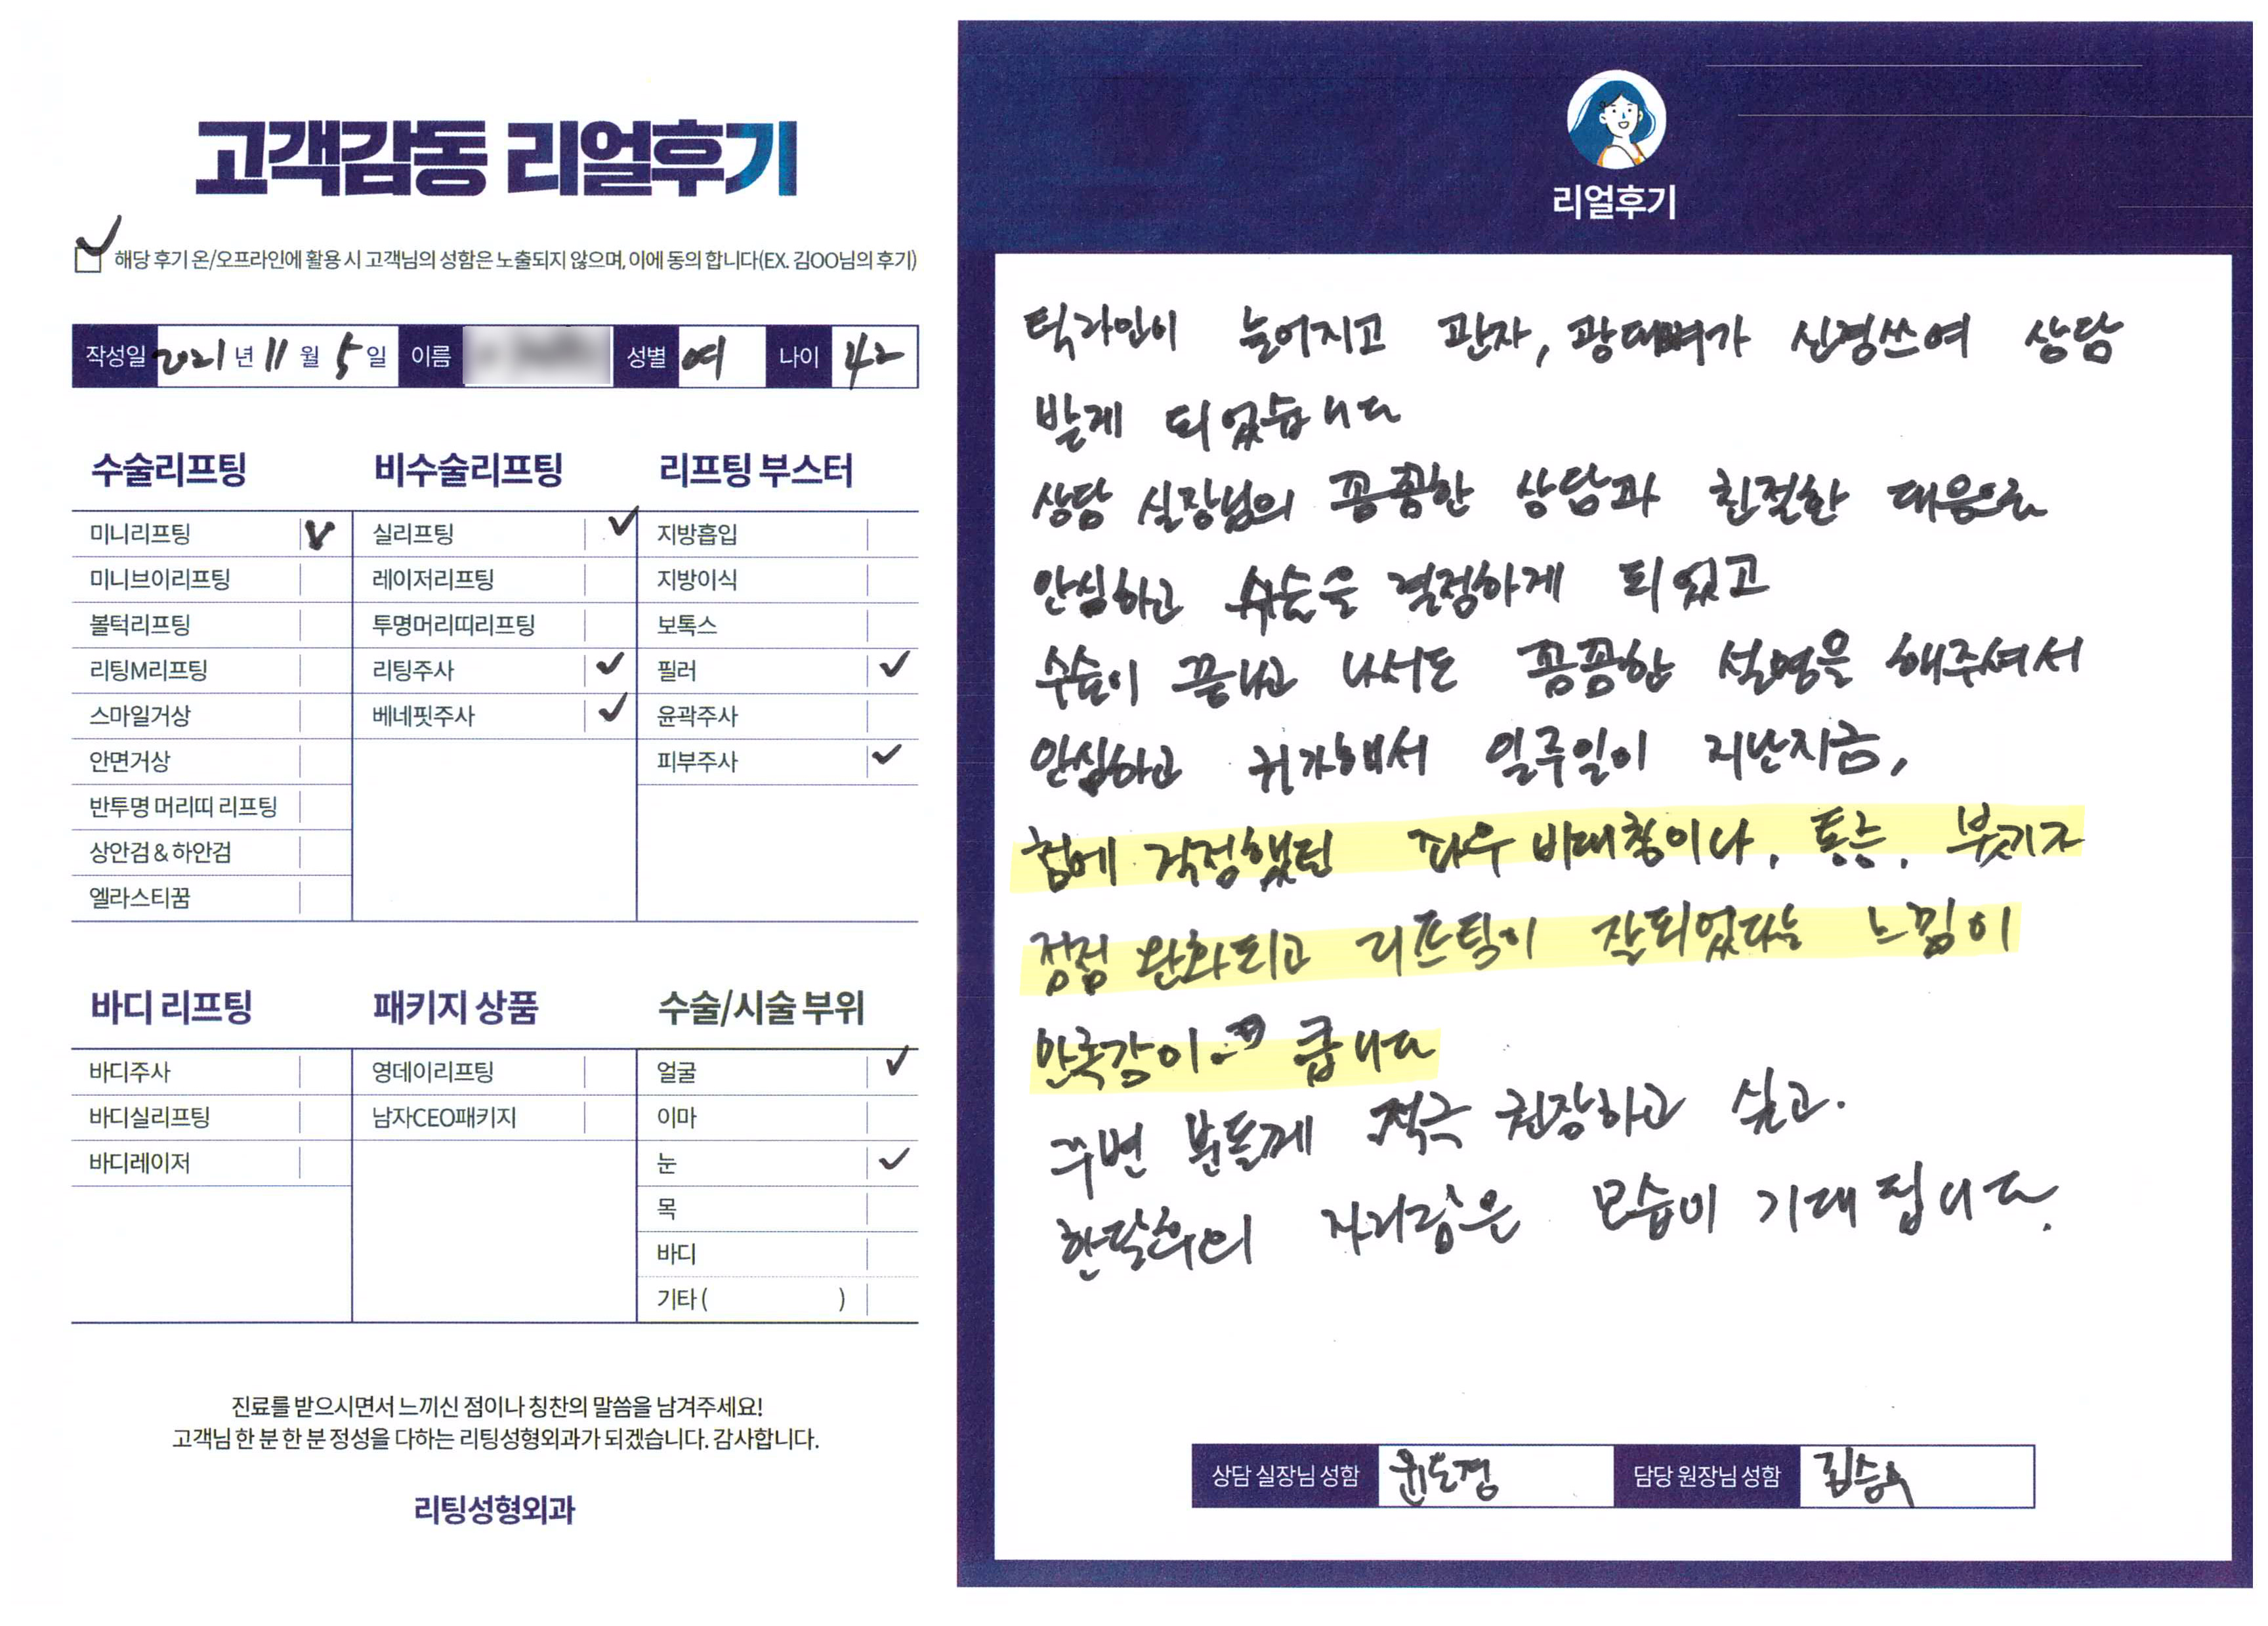 고객감동 리얼후기
해당 후기 온/오프라인에 활용 시 고객님의 성함은 노출되지 않으며, 이에 동의 합니다(EX. 김OO님의 후기)
작성일 2021 년 11 월 5 일 이름 성별 여 나이 42
수술리프팅
미니리프팅
미니브이리프팅
볼턱리프팅
리팅M리프팅
스마일거상
안면거상
반투명 머리띠 리프팅
상안검 & 하안검
엘라스티꿈
비수술리프팅
실리프팅
레이저리프팅
투명머리띠리프팅
리팅주사
베네핏주사
리프팅 부스터
지방흡입
지방이식
보톡스
필러
윤곽주사
피부주사
바디 리프팅
바디주사
바디실리프팅
바디레이저
패키지 상품
영데이리프팅
남자CEO패키지
수술/시술 부위
얼굴
이마
눈
목
바디
기타 ( )
진료를 받으시면서 느끼신 점이나 칭찬의 말씀을 남겨주세요!
고객님 한 분 한 분 정성을 다하는 리팅성형외과가 되겠습니다. 감사합니다.
리팅성형외과
리얼후기
턱라인이 늘어지고 관자, 광대뼈가 신경쓰여 상담
받게 되었습니다
상담 실장님의 꼼꼼한 상담과 친절한 대응으로
안심하고 수술을 결정하게 되었고
수술이 끝나고 나서도 꼼꼼한 설명을 해주셔서
안심하고 귀가해서 일주일이 지난지금,
첨에 걱정했던 좌우 비대칭이나, 통증, 붓기가
점점 완화되고 리프팅이 잘되었다는 느낌이
만족감이 큽니다
주변 분들께 적극 권장하고 싶고.
한달후의 자리잡은 모습이 기대 됩니다.
상담 실장님 성함 윤도경
담당 원장님 성함